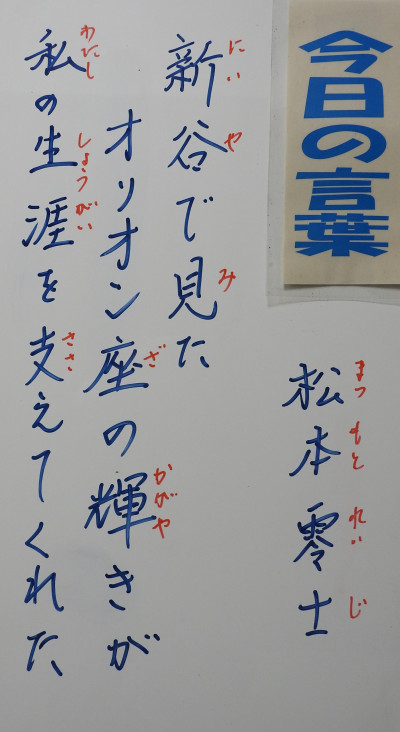 今日の言葉
松本零士
まつもとれいじ
新谷で見た
にいやみ
オリオン座の輝きが
ざかがや
私の生涯を支えてくれた
わたししょうがいささ